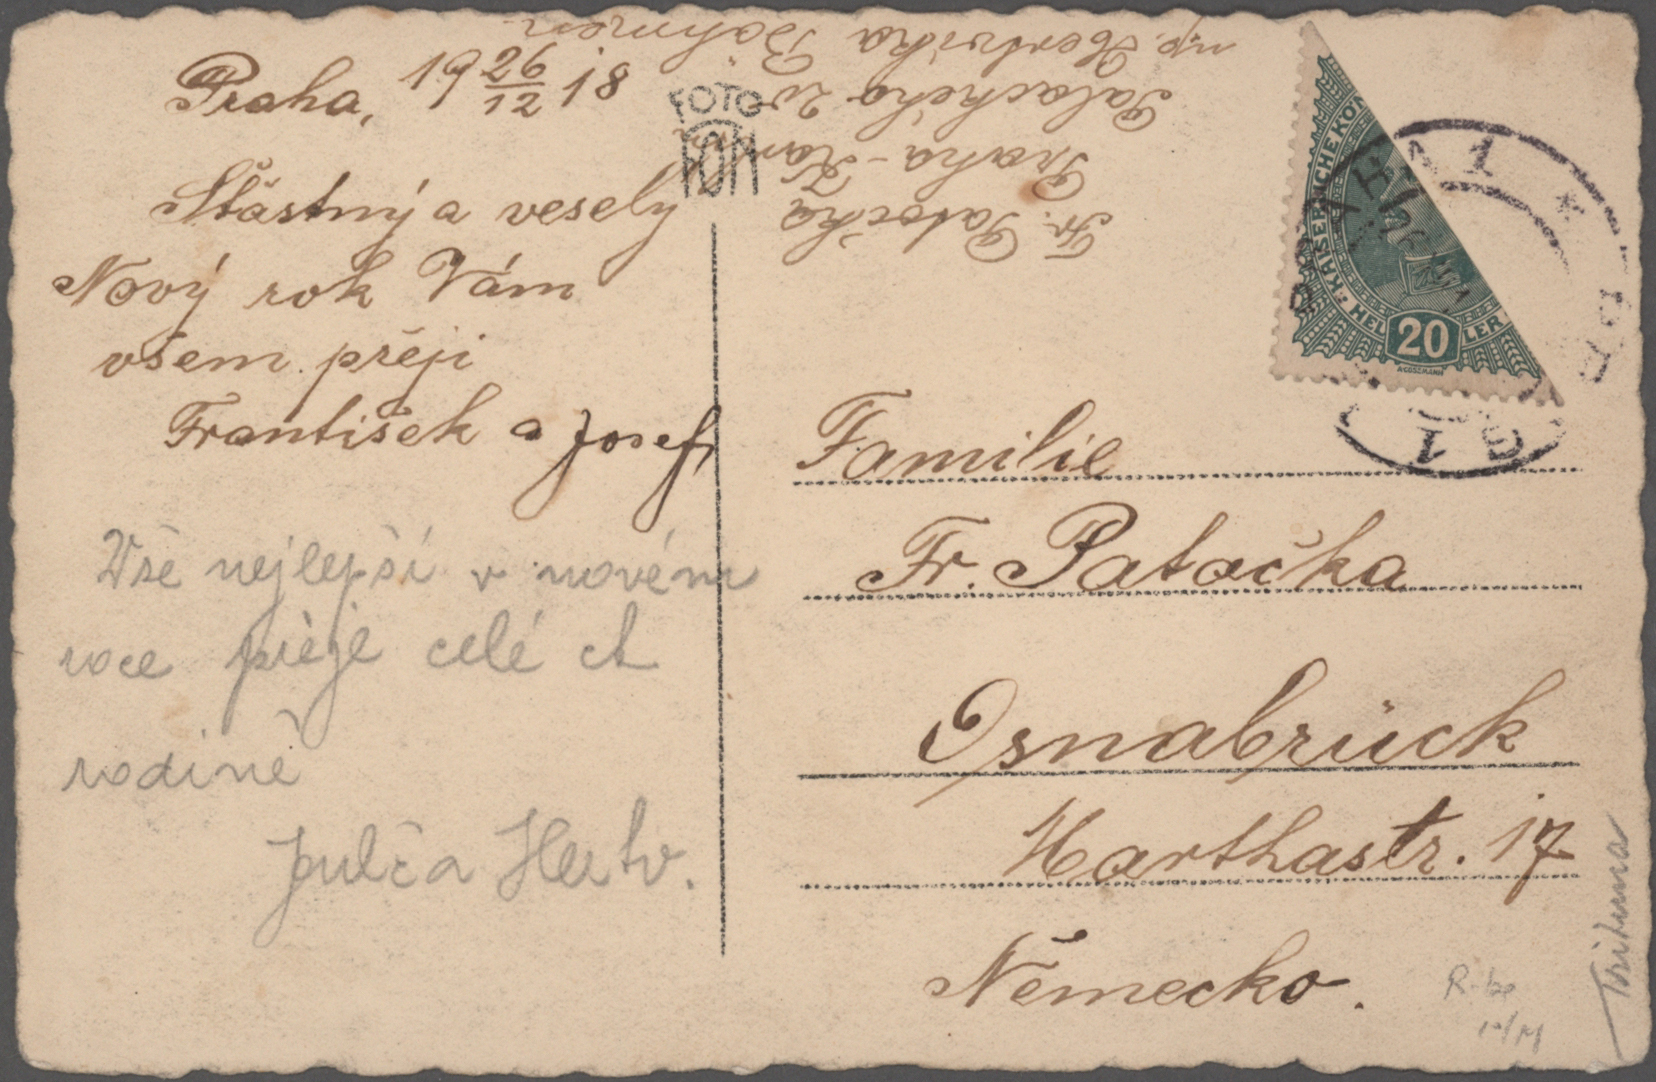 Praha, 19 26/12 18
Šťastný a veselý
Nový rok Vám
všem přeji
František a Josef
Vše nejlepší v novém
roce přeje celé ct
rodině
Julča Hertv.
FOTO
FON
Fr. Patočka
Praha - Karlín
Palackého 20
Böhmen
KAISERLICHE KÖN
HELLER
20
Familie
Fr. Patočka
Osnabrück
Marthastr. 17
Německo.